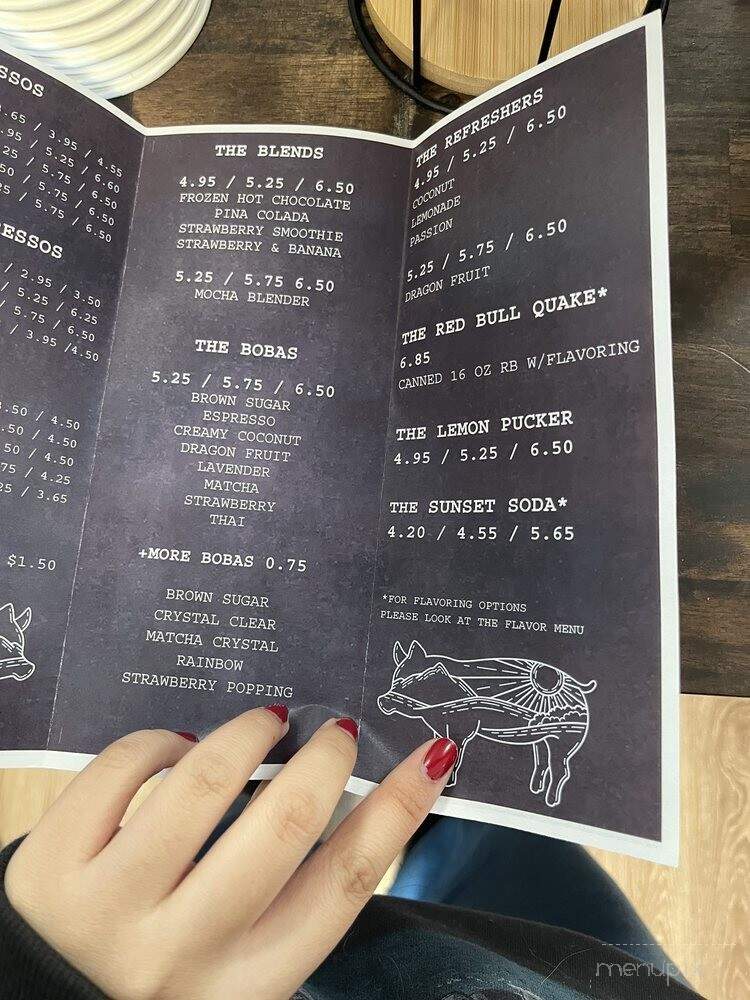 SSOS
.65 / 3.95 / 4.55
.95 / 5.25 / 6.60
50 / 5.75 / 6.50
/ 5.75 / 6.50
25 / 5.75 / 6.50
ESSOS
/ 2.95 / 3.50
/ 5.25 / 6.25
/ 5.75 / 6.50
/ 3.95 /4.50
.50 / 4.50
.50 / 4.50
.50 / 4.50
.75 / 4.25
25 / 3.65
$1.50
THE BLENDS
4.95 / 5.25 / 6.50
FROZEN HOT CHOCOLATE
PINA COLADA
STRAWBERRY SMOOTHIE
STRAWBERRY & BANANA
5.25 / 5.75 6.50
MOCHA BLENDER
THE BOBAS
5.25 / 5.75 / 6.50
BROWN SUGAR
ESPRESSO
CREAMY COCONUT
DRAGON FRUIT
LAVENDER
MATCHA
STRAWBERRY
THAI
+MORE BOBAS 0.75
BROWN SUGAR
CRYSTAL CLEAR
MATCHA CRYSTAL
RAINBOW
STRAWBERRY POPPING
THE REFRESHERS
4.95 / 5.25 / 6.50
COCONUT
LEMONADE
PASSION
5.25 / 5.75 / 6.50
DRAGON FRUIT
THE RED BULL QUAKE*
6.85
CANNED 16 OZ RB W/FLAVORING
THE LEMON PUCKER
4.95 / 5.25 / 6.50
THE SUNSET SODA*
4.20 / 4.55 / 5.65
*FOR FLAVORING OPTIONS
PLEASE LOOK AT THE FLAVOR MENU